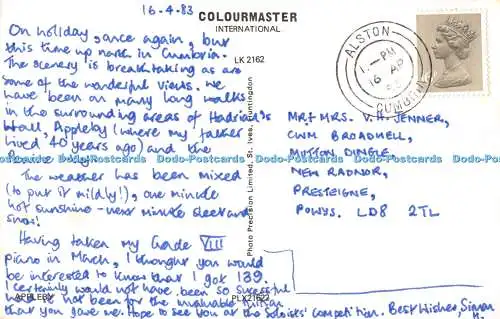 16-4-83
On holiday, once again, but
this time up north in Cumbria.
The scenery is breathtaking as are
some of the wonderful views. We
have been on many long walks
in the surrounding areas of Hadrian's
Wall, Appleby (where my father
lived 40 years ago) and the
The weather has been mixed
(to put it mildly!), one minute
hot sunshine - next minute sleet and
snow!
Having taken my Grade VIII
piano in March, I thought you would
be interested to know that I got 139.
I certainly would not have been so sucessful
had it not been for the invaluable tuition
that you gave me. Hope to see you at the Soloists' Competition. Best Wishes, Simon
APPLEBY
PLX21622
COLOURMASTER
INTERNATIONAL
LK 2162
Photo Precision Limited, St. Ives, Huntingdon
ALSTON
1-PM
16 AP
CUMBRIA
MR & MRS. V. H. JENNER,
CWM BROADWELL,
MUTTON DINGLE,
NEW RADNOR,
PRESTEIGNE,
POWYS. LD8 2TL
Dodo-Postcards Dodo-Postcards Dodo-Postcards Dodo-Postcards Dodo-Postcards Dodo-Postcards